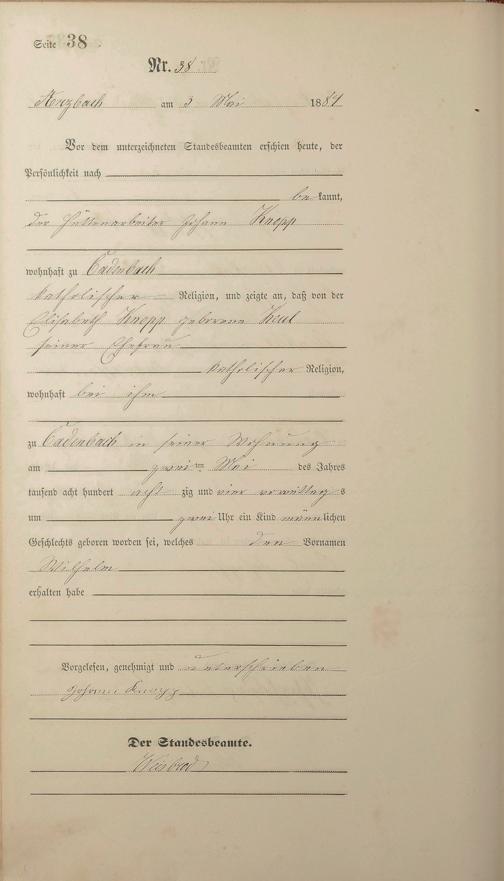 Seite 38
Nr. 38
Arzbach am 3 Mai 1884
Vor dem unterzeichneten Standesbeamten erschien heute, der
Persönlichkeit nach
bekannt,
der Hüttenarbeiter Johann Knopp
wohnhaft zu Cadenbach
katholischer Religion, und zeigte an, daß von der
Elisabeth Knopp geborene Keul
seiner Ehefrau
katholischer Religion,
wohnhaft bei ihm
zu Cadenbach in seiner Wohnung
am zwei ten Mai des Jahres
tausend acht hundert acht zig und vier vormittags
um zwei Uhr ein Kind männlichen
Geschlechts geboren worden sei, welches den Vornamen
Wilhelm
erhalten habe
Vorgelesen, genehmigt und unterschrieben
Johann Knopp
Der Standesbeamte.
Weisbrod